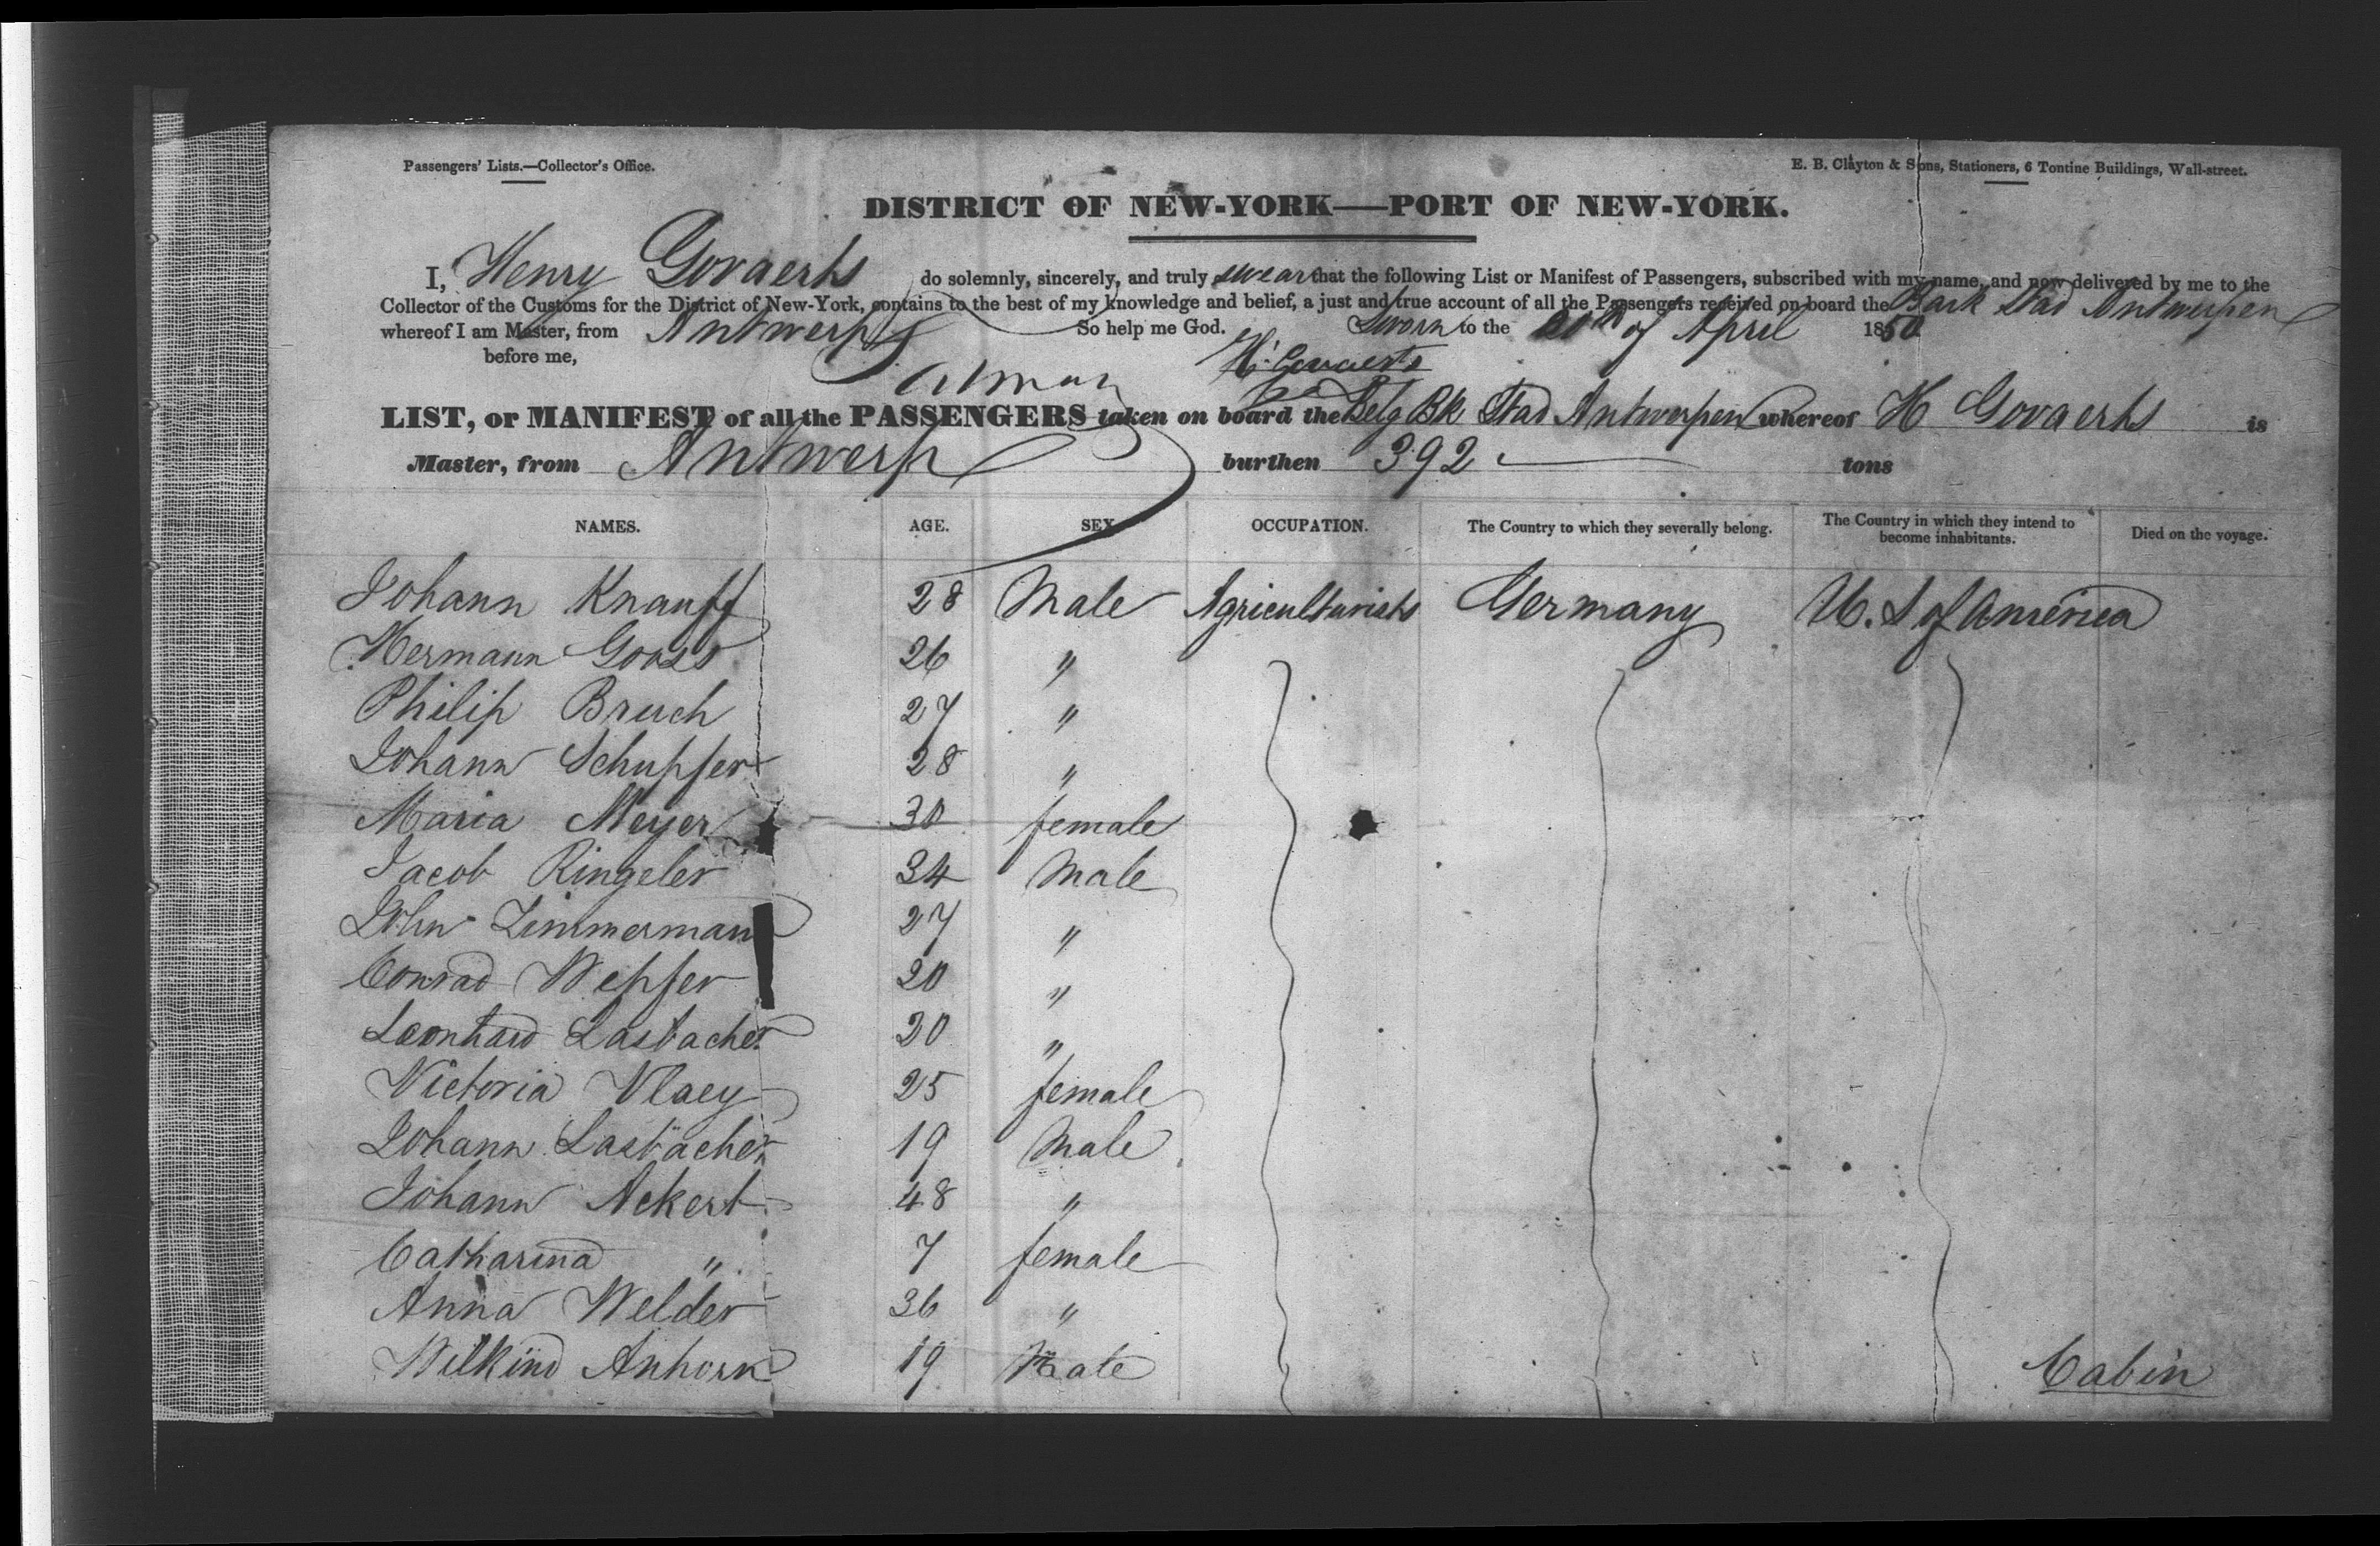 Passengers' Lists.—Collector's Office.
E. B. Clayton & Sons, Stationers, 6 Tontine Buildings, Wall-street.
DISTRICT OF NEW-YORK—PORT OF NEW-YORK.
I, Henry Govaerts do solemnly, sincerely, and truly swear that the following List or Manifest of Passengers, subscribed with my name, and now delivered by me to the
Collector of the Customs for the District of New-York, contains to the best of my knowledge and belief, a just and true account of all the Passengers received on board the Bark Stad Antwerpen
whereof I am Master, from Antwerp So help me God. Sworn to the of April 1850
before me, H. Govaerts
LIST, or MANIFEST of all the PASSENGERS taken on board the Belg Bk Stad Antwerpen whereof H Govaerts is
Master, from Antwerp burthen 392 tons
NAMES. AGE. SEX. OCCUPATION. The Country to which they severally belong. The Country in which they intend to become inhabitants. Died on the voyage.
Johann Knauff 28 Male Agriculturists Germany U. S of America
Hermann Gooss 26 "
Philip Bruch 27 "
Johann Schupfer 28 "
Maria Meyer 30 female
Jacob Ringeler 34 Male
John Zimmermann 27 "
Conrad Wepfer 20 "
Leonhard Lasbacher 20 "
Victoria Vlaey 25 female
Johann Lasbacher 19 Male
Johann Ackert 48 "
Catharina " 7 female
Anna Welder 36 "
Wilkind Anhorn 19 Male
Cabin